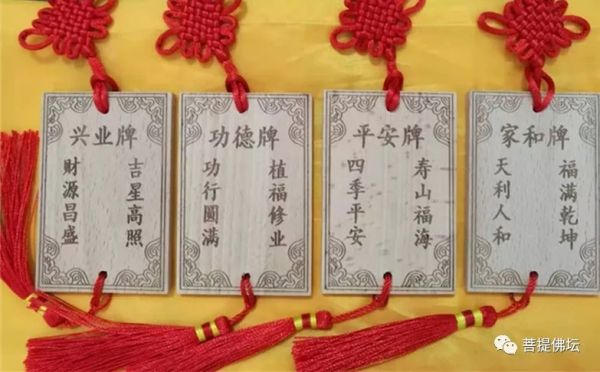 兴业牌
吉星高照
财源昌盛
功德牌
植福修业
功行圆满
平安牌
寿山福海
四季平安
家和牌
福满乾坤
天利人和
菩提佛坛